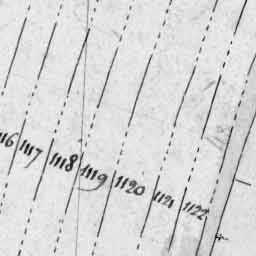 116 1117 1118 1119 1120 1121 1122